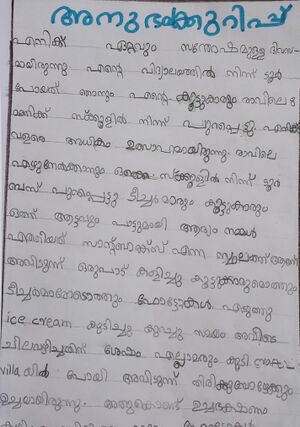 അനുഭവക്കുറിപ്പ്
എനിക്ക് ഏറ്റവും സന്തോഷമുള്ള ദിവസ-
മായിരുന്നു എന്റെ വിദ്യാലയത്തിൽ നിന്ന് ടൂർ
പോയത് ഞാനും എന്റെ കൂട്ടുകാരും രാവിലെ 8
മണിക്ക് സ്ക്കൂളിൽ നിന്ന് പുറപ്പെട്ടു. എനിക്ക്
വളരെ അധികം ഉത്സാഹമായിരുന്നു. രാവിലെ
എഴുന്നേൽക്കാനും. സ്ക്കൂളിൽ നിന്ന് ടൂർ
ബസ് പുറപ്പെട്ടു ടീച്ചർമാരും കൂട്ടുകാരും
ഒത്ത് ആട്ടവും പാട്ടുമായി ആദ്യം നമ്മൾ
എത്തിയത് സാന്റ്ബാങ്ക്സ് എന്ന സ്ഥലത്ത് ആണ്
അവിടുന്ന് ഒരുപാട് കളിച്ചു കൂട്ടുക്കാരുമൊത്തും
ടീച്ചർമാരോടൊത്തും ഫോട്ടോകൾ എടുത്തു
ice cream കുടിച്ചു കുറച്ചു സമയം അവിടെ
ചിലവഴിച്ചതിന് ശേഷം എല്ലാരും കൂടി
villa യിൽ പോയി അവിടുന്ന് തിരിക്കുമ്പോഴേക്കും
ഉച്ചയായിരുന്നു. അതുകൊണ്ട് ഉച്ചഭക്ഷണം